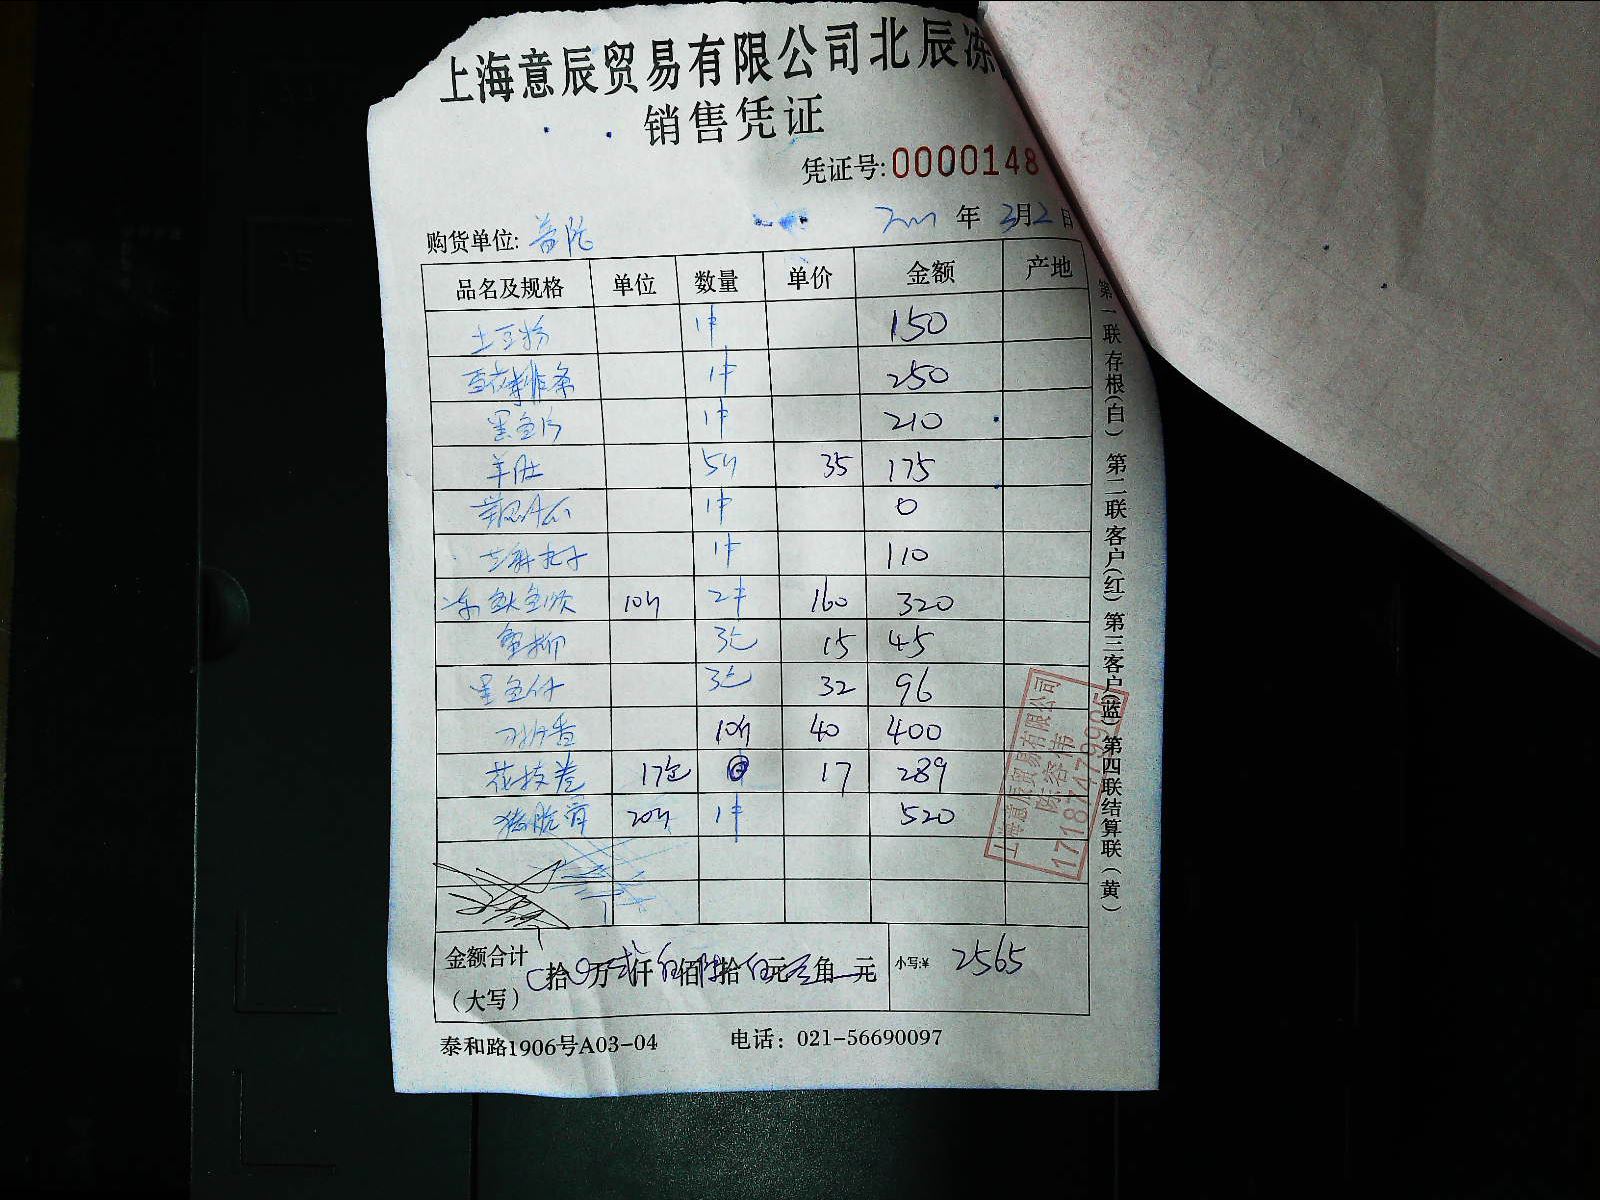 上海意辰贸易有限公司北辰冻
销售凭证
凭证号:0000148
购货单位: 普陀 年 3月2日
品名及规格 单位 数量 单价 金额 产地
土豆粉 1件 150
1件 250
黑鱼片 1件 210
羊肚 5斤 35 175
1件 0
1件 110
冻 鱿鱼须 10斤 2件 160 320
蟹柳 3包 15 45
黑鱼仔 3包 32 96
10斤 40 400
花枝卷 17包 17 289
猪脆骨 20斤 1件 520
金额合计
(大写) 拾 万 仟 佰 拾 元 角 元 小写:¥ 2565
泰和路1906号A03-04 电话: 021-56690097
第一联存根(白) 第二联客户(红) 第三客户(蓝) 第四联结算联(黄)
上海意辰贸易有限公司